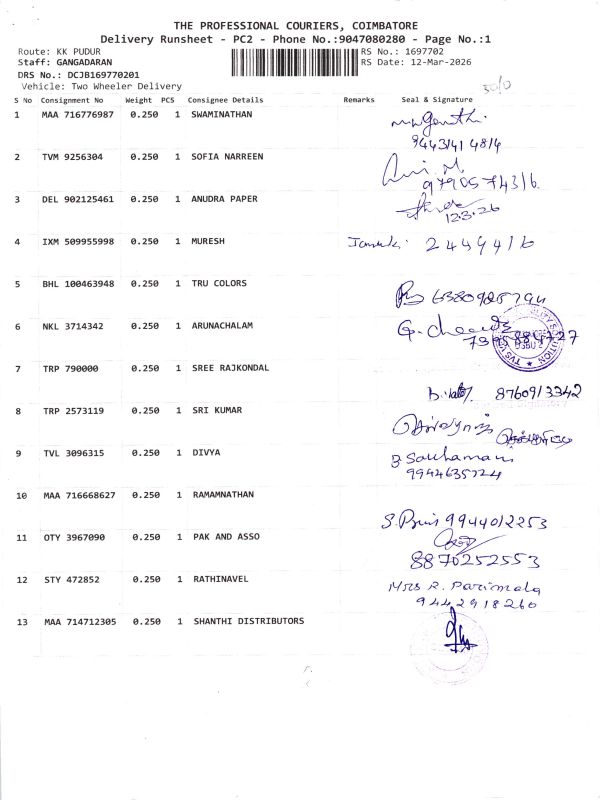 THE PROFESSIONAL COURIERS, COIMBATORE
Delivery Runsheet - PC2 - Phone No.:9047080280 - Page No.:1
Route: KK PUDUR RS No.: 1697702
Staff: GANGADARAN RS Date: 12-Mar-2026
DRS No.: DCJB169770201
Vehicle: Two Wheeler Delivery
S No Consignment No Weight PCS Consignee Details Remarks Seal & Signature
1 MAA 716776987 0.250 1 SWAMINATHAN
9443141 4814
2 TVM 9256304 0.250 1 SOFIA NARREEN
9790574316
3 DEL 902125461 0.250 1 ANUDRA PAPER
12.3.26
4 IXM 509955998 0.250 1 MURESH 2449416
5 BHL 100463948 0.250 1 TRU COLORS
6 NKL 3714342 0.250 1 ARUNACHALAM
7 TRP 790000 0.250 1 SREE RAJKONDAL
8760913342
8 TRP 2573119 0.250 1 SRI KUMAR
9 TVL 3096315 0.250 1 DIVYA
9944635724
10 MAA 716668627 0.250 1 RAMAMNATHAN
9944012253
11 OTY 3967090 0.250 1 PAK AND ASSO
8870252553
12 STY 472852 0.250 1 RATHINAVEL Mrs R. Parimala
9442918260
13 MAA 714712305 0.250 1 SHANTHI DISTRIBUTORS